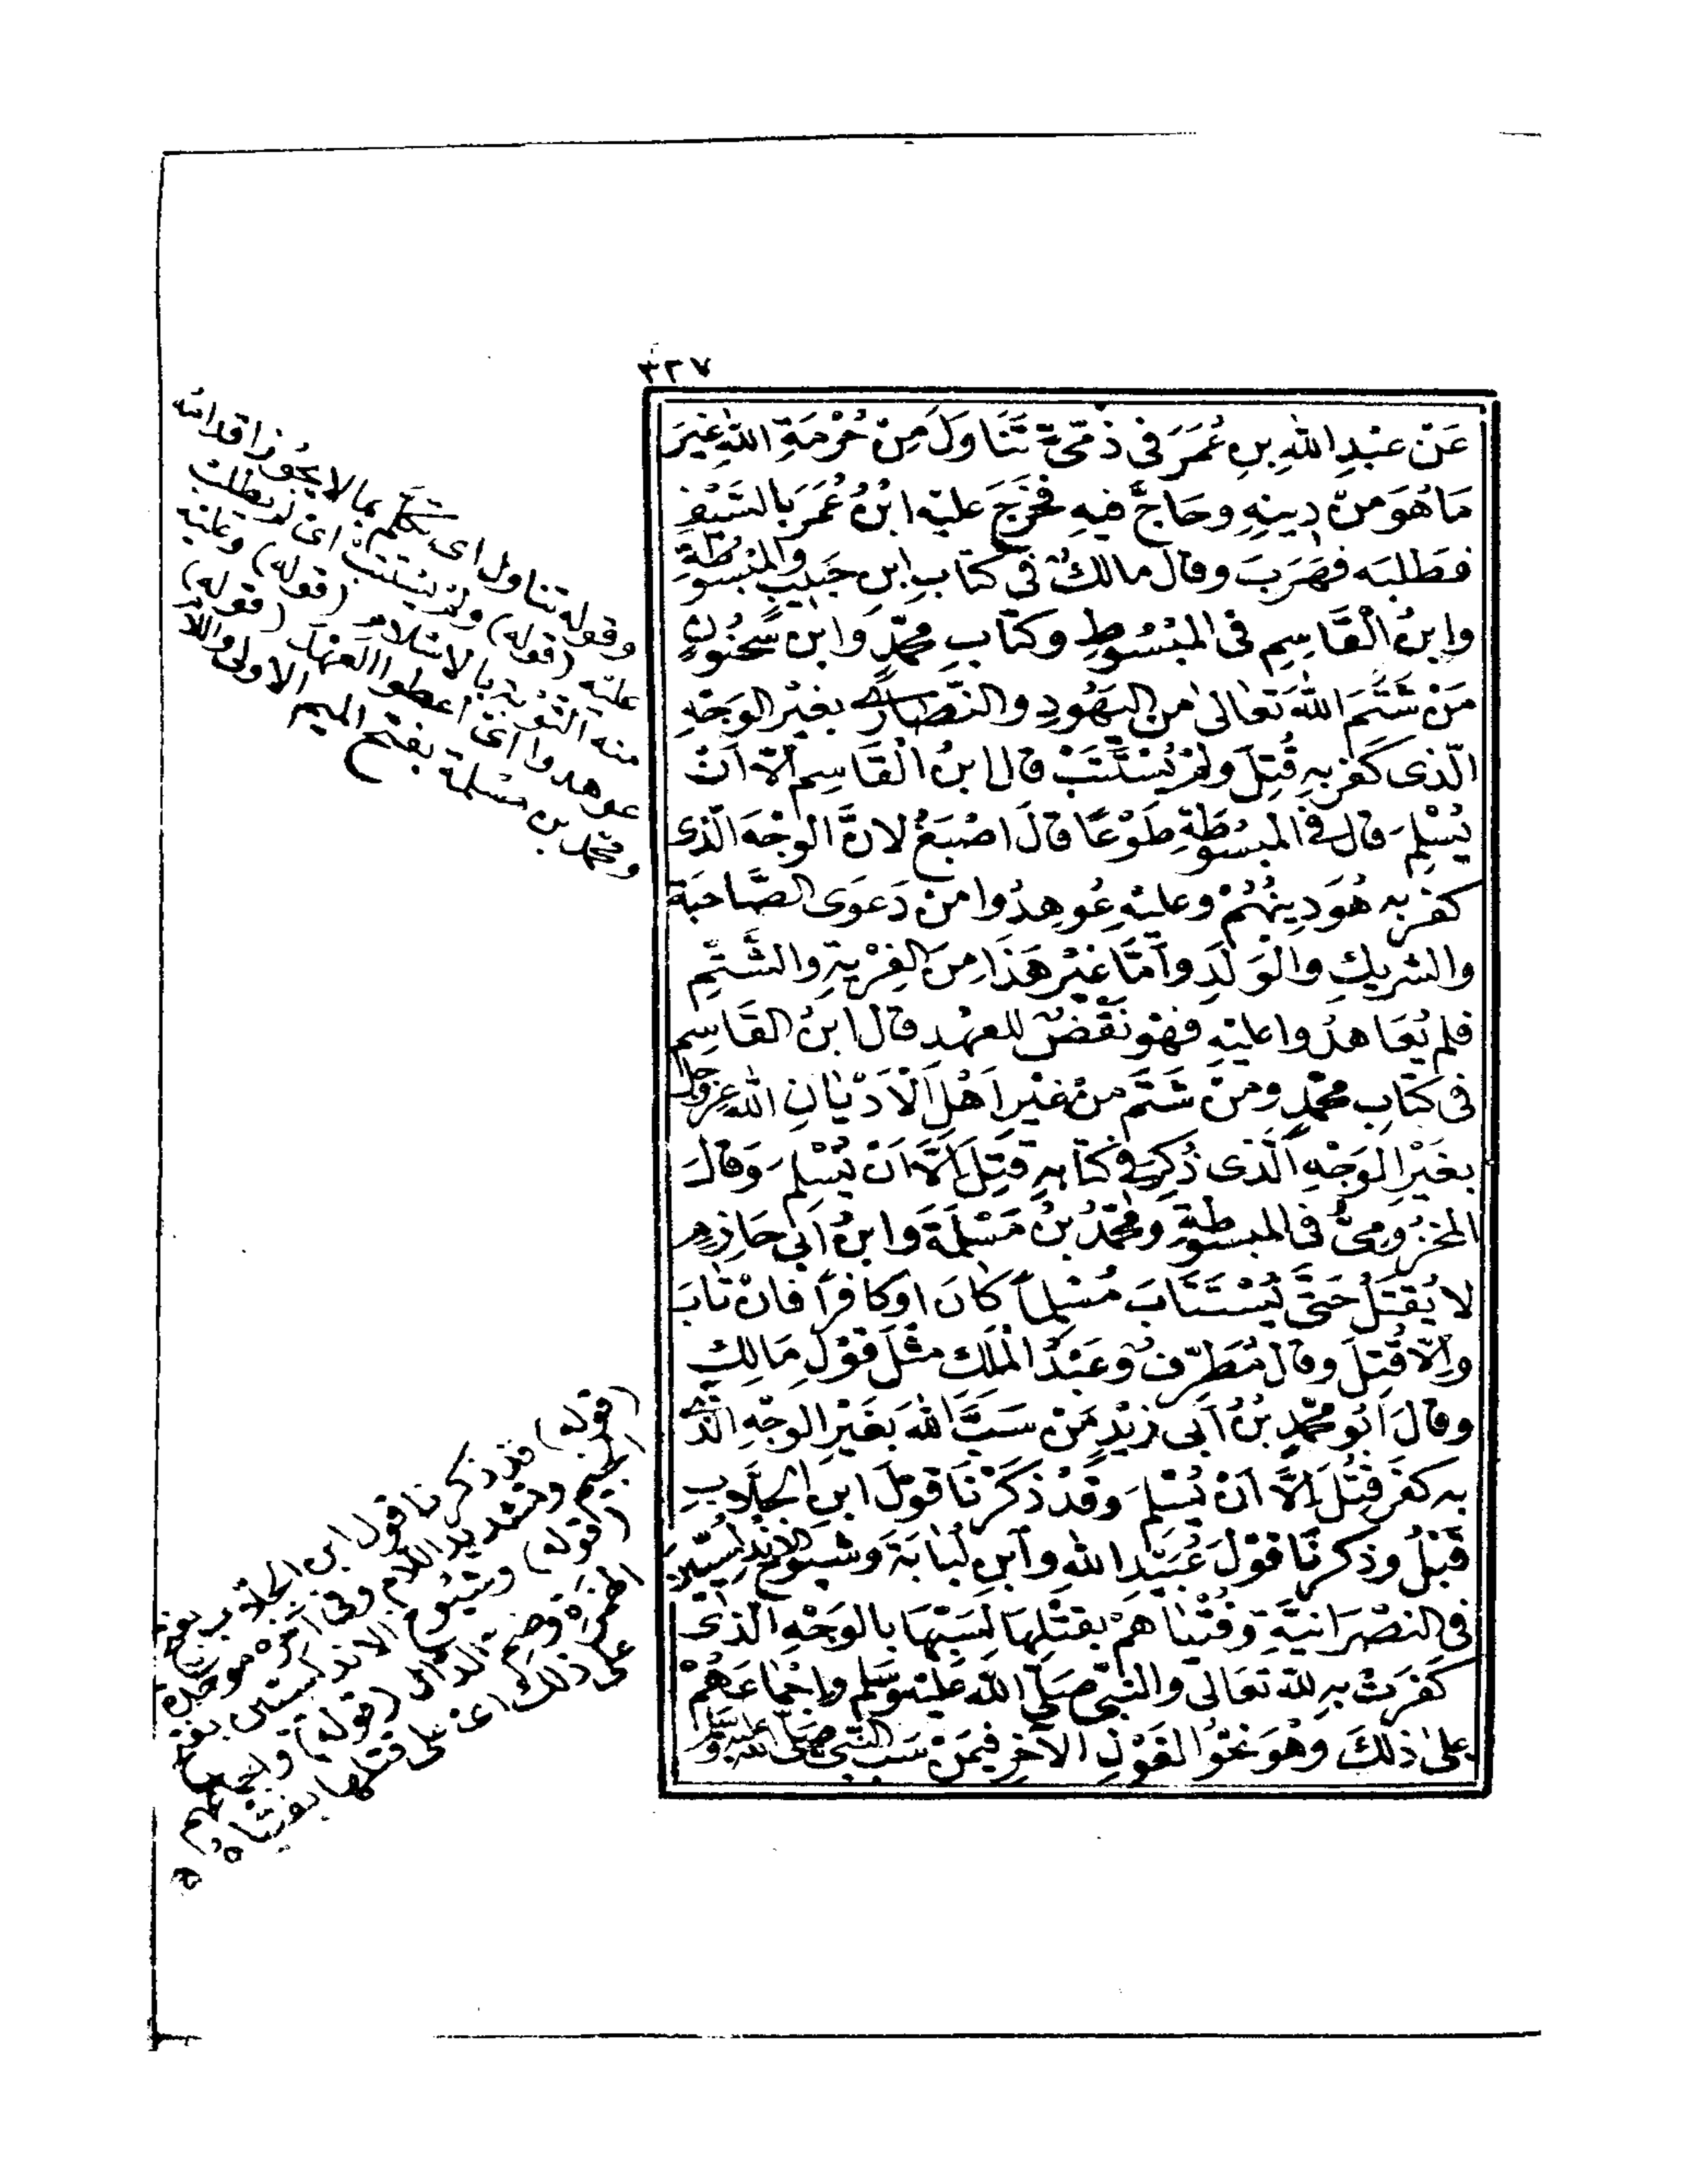 ٣٢٧
عَنْ عَبْدِ اللهِ بنِ عُمَرَ فى ذِمِّىٍّ تَنَاوَلَ مِنْ حُرْمَةِ اللهِ غيرَ
مَا هُوَ مِنْ دِينِهِ وحَاجَّ فيهِ فخَرَجَ عليْهِ ابْنُ عُمَرَ بالسَّيْفِ
فطَلبَه فهَرَبَ وقالَ مالكٌ فى كتابِ ابنِ حَبيبٍ والمَبْسُوطةِ
وابنُ الْقَاسِمِ فى المَبْسُوطِ وكتابِ محمَّدٍ وابن سُحْنُونٍ
مَنْ شَتَمَ اللهَ تَعَالىٰ من اليَهُودِ والنَّصَارَى بغيْرِ الوَجْهِ
الّذى كَفرَ بِهِ قُتِلَ ولمْ يُسْتَتَبْ قالَ ابنُ الْقَاسِم اِلاّ اَنْ
يُسْلِمَ قال فى المبْسُوطَةِ طَوْعًا قالَ اَصْبَغُ لانَّ الوَجْهَ الّذى
كفرَ بِه هُوَ دِينُهُمْ وعليْهِ عُوهِدُوا منْ دَعوَى الصَّاحِبَةِ
والشريكِ والوَلَدِ واَمَّا غيْرُ هَذَا مِنَ الفِرْيَةِ والشَّتْمِ
فلم يُعَاهدُوا عليْهِ فهْوَ نَقْضٌ للعهْدِ قال ابنُ القَاسِمِ
فى كتابِ محمَّدٍ ومَنْ شَتَمَ منْ غيْرِ اَهْلِ الْاَدْيَانِ اللهَ عزوجل
بغَيْرِ الوَجْهِ الَّذى ذُكِرَ فى كتابِهِ قُتِلَ اِلَّا اَنْ يُسْلِمَ وَقالَ
المخزُومىُّ فى المبسوطةِ ومُحمَّدُ بنُ مَسْلَمَةَ وابنُ اَبى حَازِمٍ
لا يُقتَلُ حَتَّى يُسْتَتَابَ مُسْلِماً كانَ اوكافرًا فانْ تابَ
واِلاّ قُتِلَ وقال مُطَرّفٌ وعَبْدُ المَلك مثْلَ قوْلِ مَالِكٍ
وقالَ اَبُو محمَّدِ بنُ اَبى زيْدٍ مَنْ سَبَّ اللهَ بغَيْرِ الوجْهِ الّذى
بِه كفَرَ قُتِلَ اِلَّا اَنْ يُسْلِمَ وقَدْ ذكَرْنَا قوْلَ ابنِ الجلَّابِ
قَبْلُ وذكرنَا قوْلَ عُبَيْدِ اللهِ وابنِ لُبَابَةَ وشيوخِ الاَنْدلُسيّينَ
فى النصْرَانيَّةِ وفُتْيَاهُمْ بقتْلِها لِسَبِّهَا بالوَجْهِ الَّذى
كَفَرتْ بِهِ للهِ تَعَالى والنَّبىِّ صَلَّى اللهُ عَليْهِ وسَلَّم واِجْمَاعَهُمْ
علىٰ ذلكَ وهُوَ نحْوُ القَوْلِ الآخرِ فيمَنْ سَبَّ النَّبىَّ صَلَّى الله عليه وسلم
وقوله تناول اى تكلم بما لا يجوز اقدامه
عليه (قوله) ولم يستتب اى لم يطلب
منه التوبة بالاسلام (قوله) وعليه
عوهدوا اى اعطوا العهد (قوله)
ومحمد بن مسلمة بفتح الميم الاولى واللام
(قوله) قد ذكرنا قول ابن الجلاب بفتح
الجيم وتشديد اللام وفى آخره موحدة
(قوله) وشيوخ الاندلسيين بفتح
الهمزة وضم الدال (قوله) واجماعهم
على ذلك اى على قتلها بفتياهم